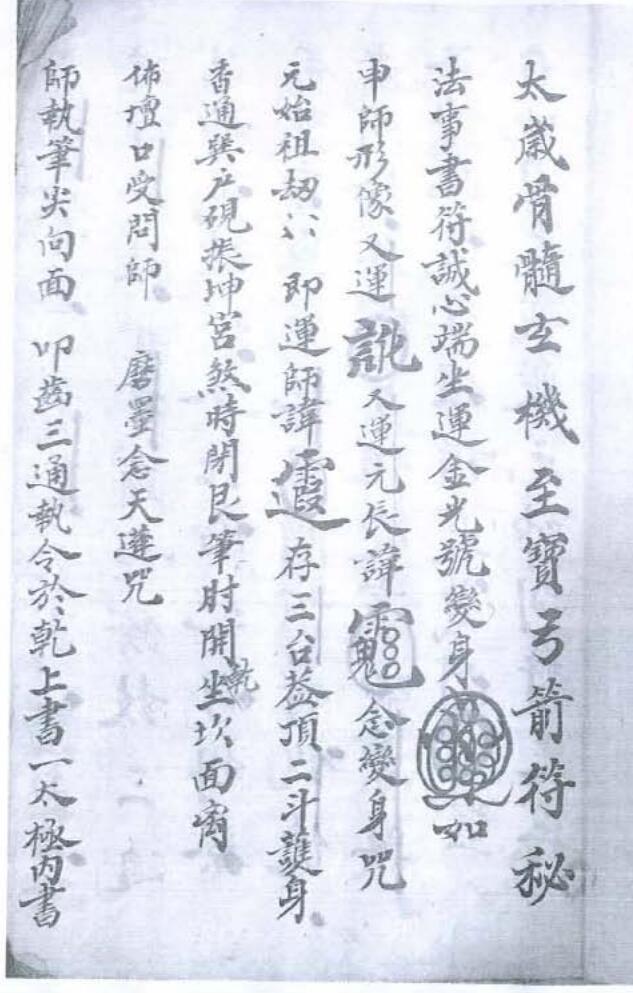 太歲骨髓玄機至寶弓箭符秘
法事書符誠心端坐運金光號變身如
申師形像又運又運元長諱念變身咒
元始祖劫〻即運師諱存三台蓋頂二斗護身
香通巽户硯振坤宮煞時閉艮筆肘開乾坐坎面离
佈壇口受問師 磨墨念天蓬咒
師執筆尖向面 叩齒三通執令於乾上書一太極內書